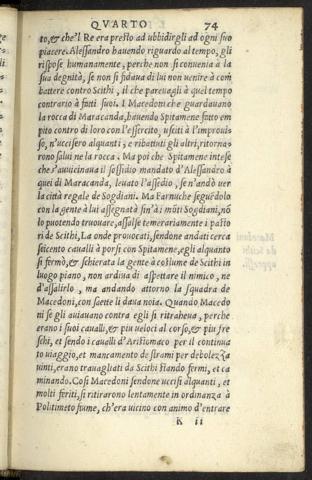 QVARTO 74
to, & che'l Re era presto ad ubbidirgli ad ogni suo
piacere. Alessandro hauendo riguardo al tempo, gli
rispose humanamente, perche non si conuenia à la
sua degnità, se non si fidaua di lui non uenire à com
battere contro Scithi, il che pareuagli à quel tempo
contrario à fatti suoi. I Macedoni che guardauano
la rocca di Maracanda, hauendo Spitamene fatto em
pito contro di loro con l'essercito, usciti à l'improui
so, n'uccisero alquanti, e ributtati gli altri, ritorna-
rono salui ne la rocca. Ma poi che Spitamene intese
che s'auuicinaua il sossidio mandato d'Alessandro à
quei di Maracanda, leuato l'assedio, se n'andò uer
la città regale de Sogdiani. Ma Farnuche seguēdolo
con la gente à lui assegnata sin'à i mōti Sogdiani, nō
lo puotendo truouare, assalse temerariamente i pasto
ri de Scithi, La onde prouocati, sendone andati cerca
seicento caualli à porsi con Spitamene, egli alquanto
si fermò, & schierata la gente à costume de Scithi in
luogo piano, non ardiua di aspettare il nimico, ne
d'assalirlo, ma andando attorno la squadra de
Macedoni, con saette li daua noia. Quando Macedo
ni se gli auiauano contra egli si ritraheua, perche
erano i suoi caualli, & piu ueloci al corso, & piu fre
schi, et sendo i caualli d'Aristomaco per il continua
to uiaggio, et mancamento de strami per debolezza
uinti, erano trauagliati da Scithi stando fermi, et ca
minando. Cosi Macedoni sendone uccisi alquanti, et
molti feriti, si ritirarono lentamente in ordinanza à
Politimeto fiume, ch'era uicino con animo d'entrare
K ii